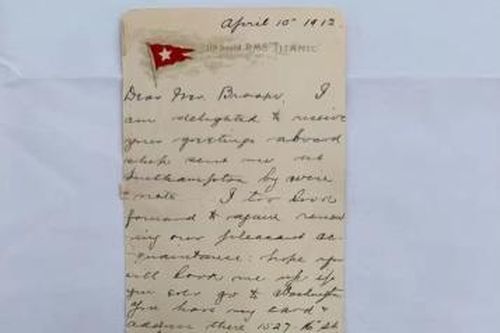 April 10th 1912.
On board R.M.S. "TITANIC"
Dear Mrs. I
am delighted to receive
your greetings aboard
ship sent me
Southampton by
note I too look
forward to again renew
ing our pleasant ac-
quaintance: hope you
will look me up if
you ever go to Washington
You have my card &
address there 1527 16th St